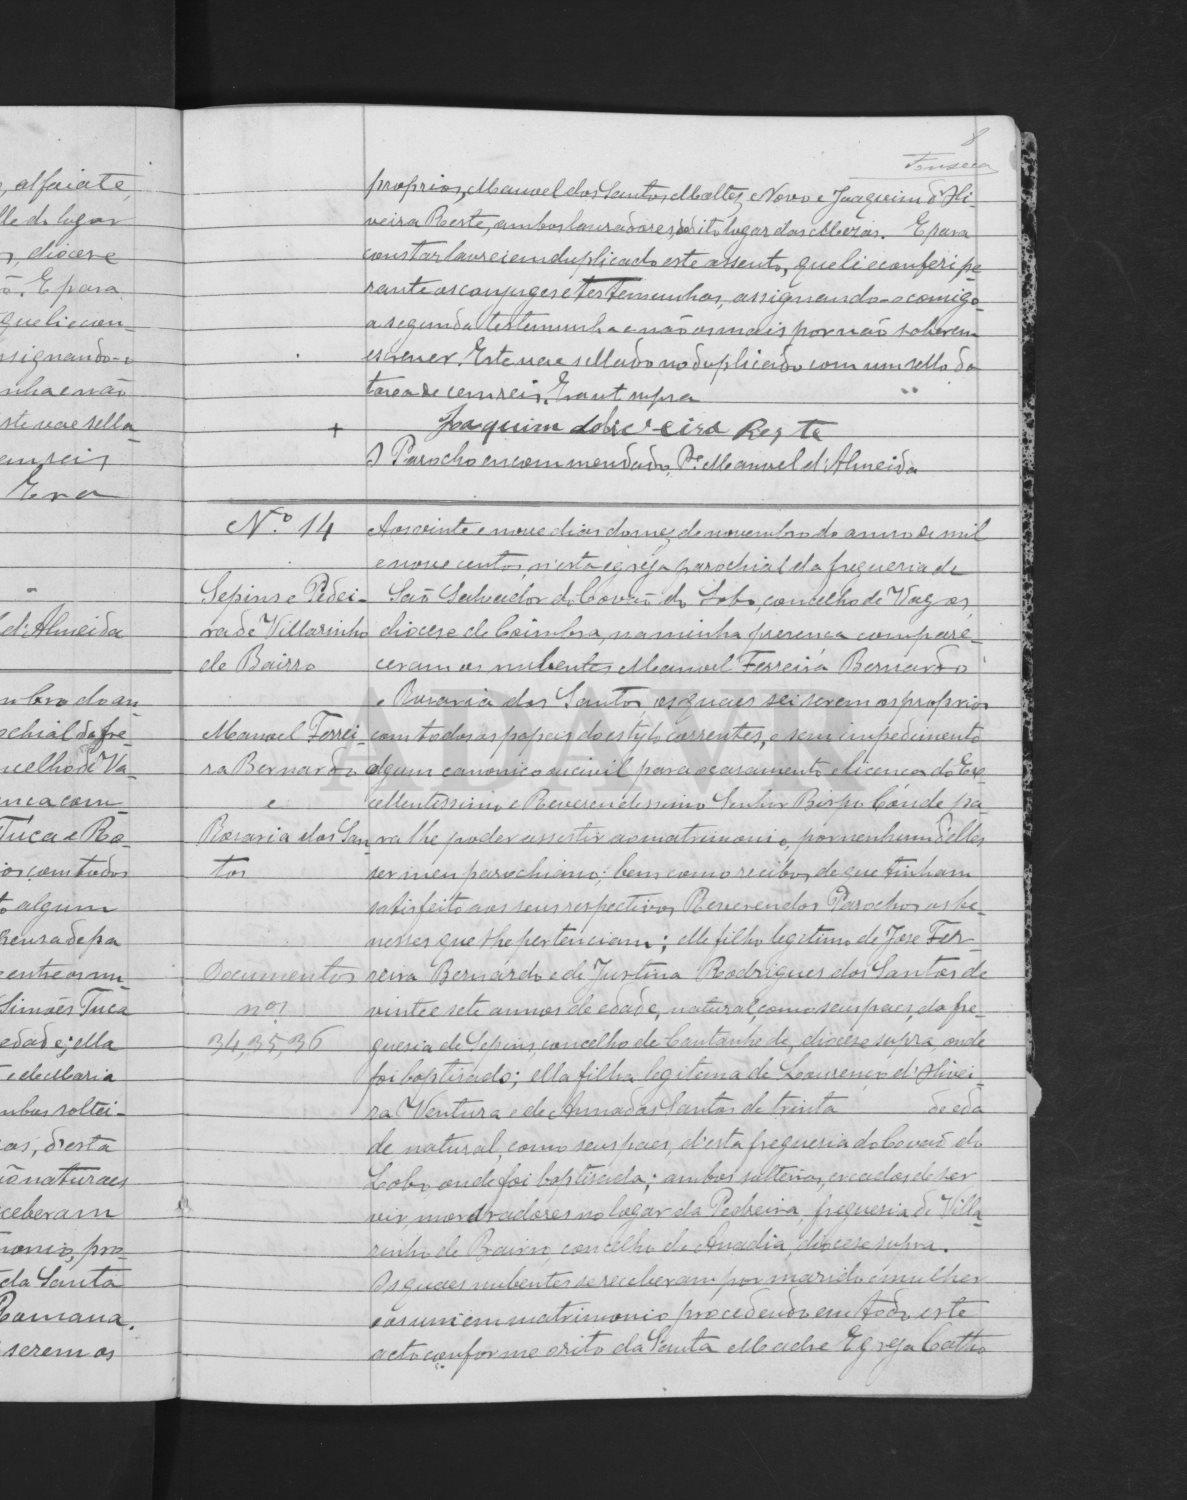 8
Fonseca
proprios, Manoel dos Santos Maltez e Novo e Joaquim d'Oli-
veira Reste, ambos lavradores, do dito logar das Mezas. E para
constar lavrei em duplicado este assento, que li e conferi pe
rante os conjuges e testemunhas, assignando-o comigo
a segunda testemunha e não os mais por não saberem
escrever. Este vae sellado no duplicado com um sello da
taxa de cem reis. Era ut supra
+
Joaquim doliveira Reste
O Parocho encommendado, Pe Manoel d'Almeida
N.º 14
Sepins e Pedei-
ra de Villarinho
de Bairro
Manoel Ferrei-
ra Bernardo
e
Rosaria dos San-
tos
Documentos
nos
34, 35, 36
Aos vinte e nove dias do mez de novembro do anno de mil
e nove centos, n'esta egreja parochial da freguesia de
São Salvador do Covão do Lobo, concelho de Vagos,
diocese de Coimbra, na minha presença compare-
ceram os nubentes Manoel Ferreira Bernardo
e Rosaria dos Santos, os quaes sei serem os proprios
com todos os papeis do estylo correntes, e sem impedimento
algum canonico ou civil para o casamento e licença do Ex
cellentissimo e Reverendissimo Senhor Bispo Conde pa
ra lhe poder assistir ao matrimonio, por nenhum d'elles
ser meu parochiano; bem como recibos de que tinham
satisfeito aos seus respectivos Reverendos Parochos os be-
nesses que lhe pertenciam; elle filho legitimo de José Fer-
reira Bernardo e de Justina Rodrigues dos Santos de
vinte e sete annos de edade, natural, como seus paes, da fre-
guesia de Sepins, concelho de Cantanhede, diocese supra, onde
foi baptisado; ella filha legitima de Lourenço d'Olivei-
ra Ventura e de Anna dos Santos de trinta de eda
de natural, como seus paes, d'esta freguesia do Covão do
Lobo onde foi baptisada; ambos solteiros, creados de ser
vir, moradores no logar da Pedreira, freguesia de Villa-
rinho de Bairro, concelho de Anadia, diocese supra.
Os quaes nubentes se receberam por marido e mulher
e os uni em matrimonio procedendo em todo este
acto conforme o rito da Santa Madre Egreja Catho
, alfaiate,
lle do logar
, diocese
ão. E para
que li e con-
ssignando-o
nha e não
ste vae sella-
em reis
Era
d'Almeida
mbro do an-
ochial da fre-
ncelho de Va-
ença com
Tuca e Ro-
ios com todos
to algum
pensa de pa
entre os nu-
Simões Tuca
edade; ella
e de Maria
mbos soltei-
as, d'esta
ão naturaes
ceberam
monio, pro-
da Santa
Romana.
serem os
ADAVR